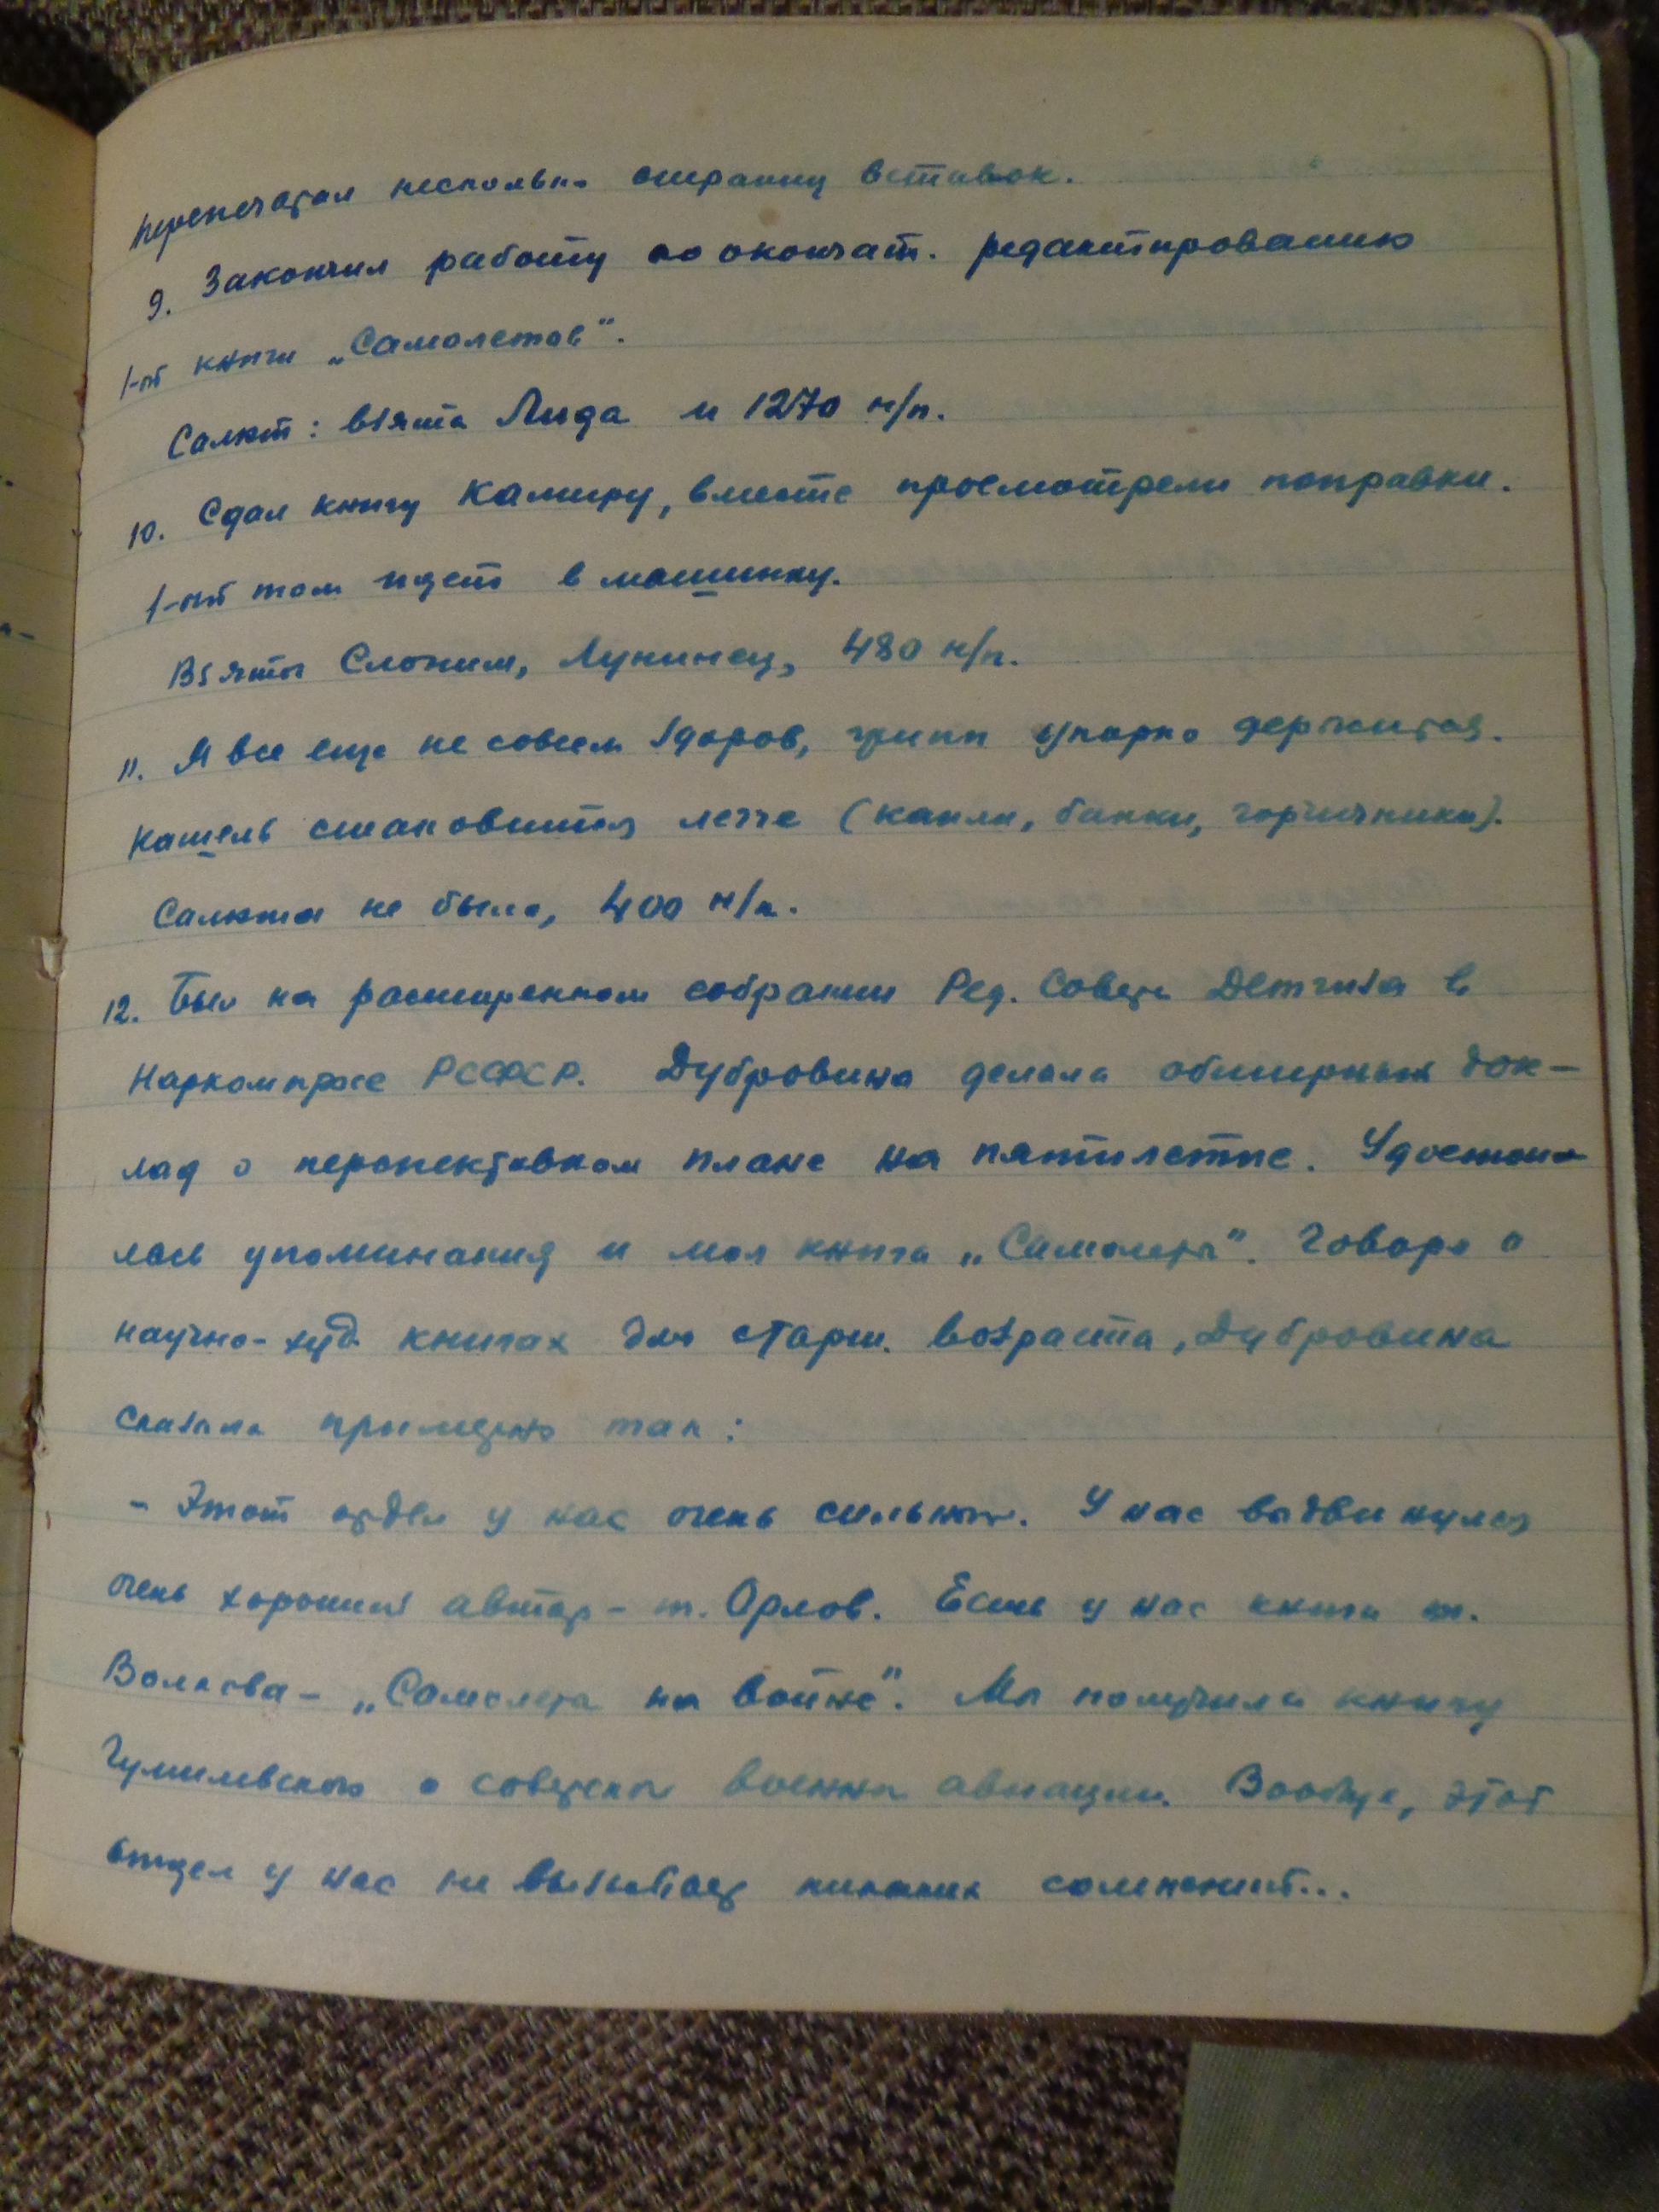 Перепечатал несколько страниц вставок.
9. Закончил работу по окончат. редактированию
1-ой книги „Самолетов".
Салют: взята Лида и 1270 н/п.
10. Сдал книгу Камиру, вместе просмотрели поправки.
1-ый том идет в машинку.
Взяты Слоним, Лунинец, 480 н/п.
11. Я все еще не совсем здоров, грипп упорно держится.
Кашель становится легче (капли, банки, горчичники).
Салюта не было, 400 н/п.
12. Был на расширенном собрании Ред. Совета Детгиза в
Наркомпросе РСФСР. Дубровина делала обширный док-
лад о перспективном плане на пятилетие. Удостои-
лась упоминания и моя книга „Самолеты". Говоря о
научно-худ. книгах для старш. возраста, Дубровина
сказала примерно так:
- Этот отдел у нас очень сильный. У нас выдвинулся
очень хороший автор - т. Орлов. Есть у нас книга т.
Волкова - „Самолеты на войне". Мы получили книгу
Гумилевского о советской военной авиации. Вообще, этот
отдел у нас не вызывает никаких сомнений...